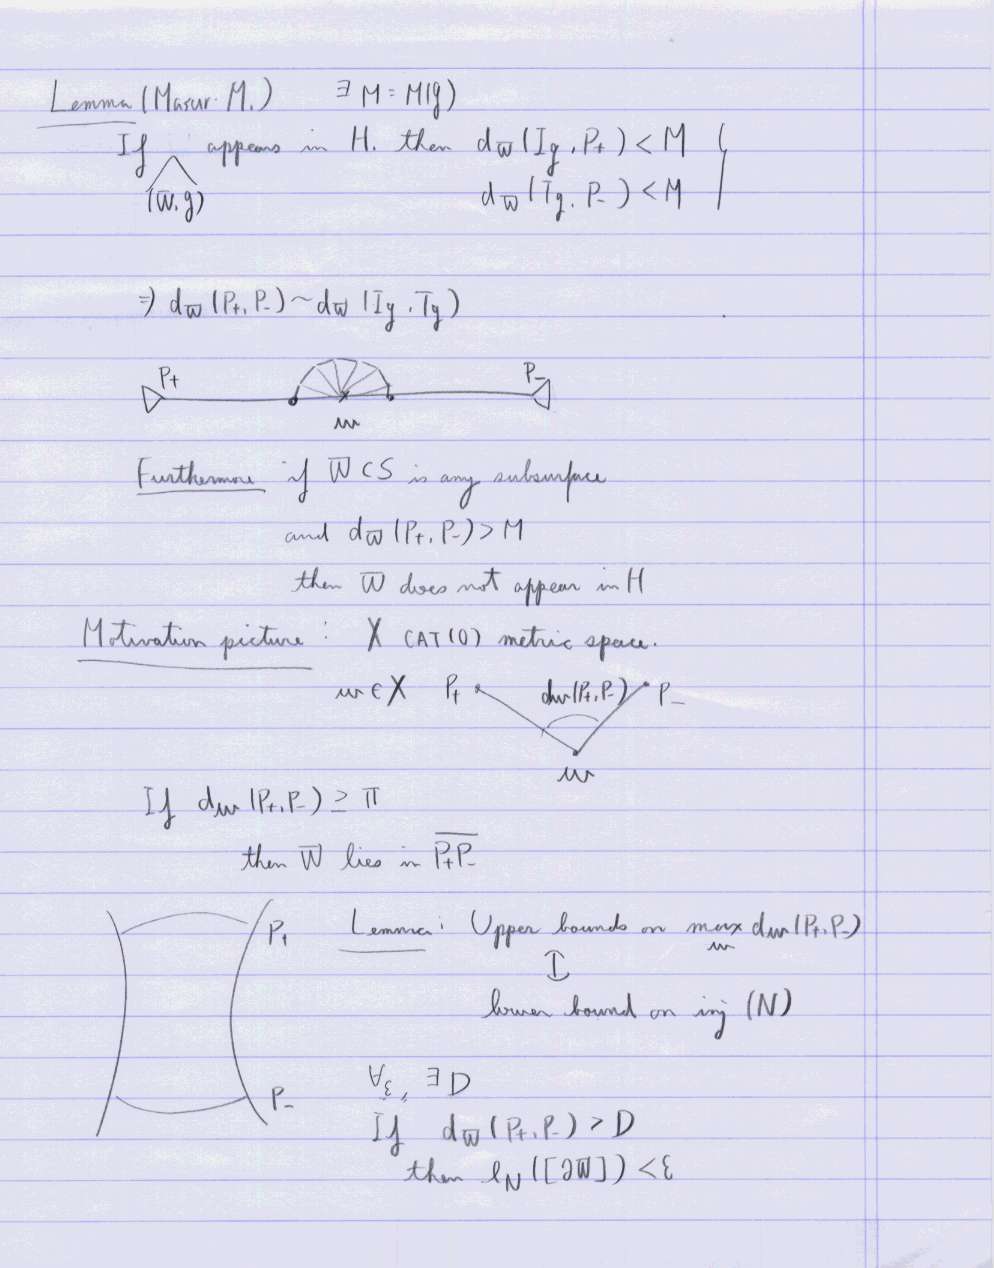 Lemma (Masur. M.) ∃ M = M(g)
If appears in H. then d_W̅ (Ig, P+) < M
(W̅, g) d_W̅ (Tg, P-) < M
⇒ d_W̅ (P+, P-) ~ d_W̅ (Ig, Tg)
P+ P-
w
Furthermore if W̅ ⊂ S is any subsurface
and d_W̅ (P+, P-) > M
then W̅ does not appear in H
Motivation picture : X CAT(0) metric space.
w ∈ X P+ dw(P+, P-) P-
w
If dw (P+, P-) ≥ π
then W̅ lies in P+P-
P+ Lemma: Upper bounds on max dw (P+, P-)
w
↕
lower bound on inj (N)
∀ε, ∃D
P-
If d_W̅ (P+, P-) > D
then l_N ([∂W̅]) < ε